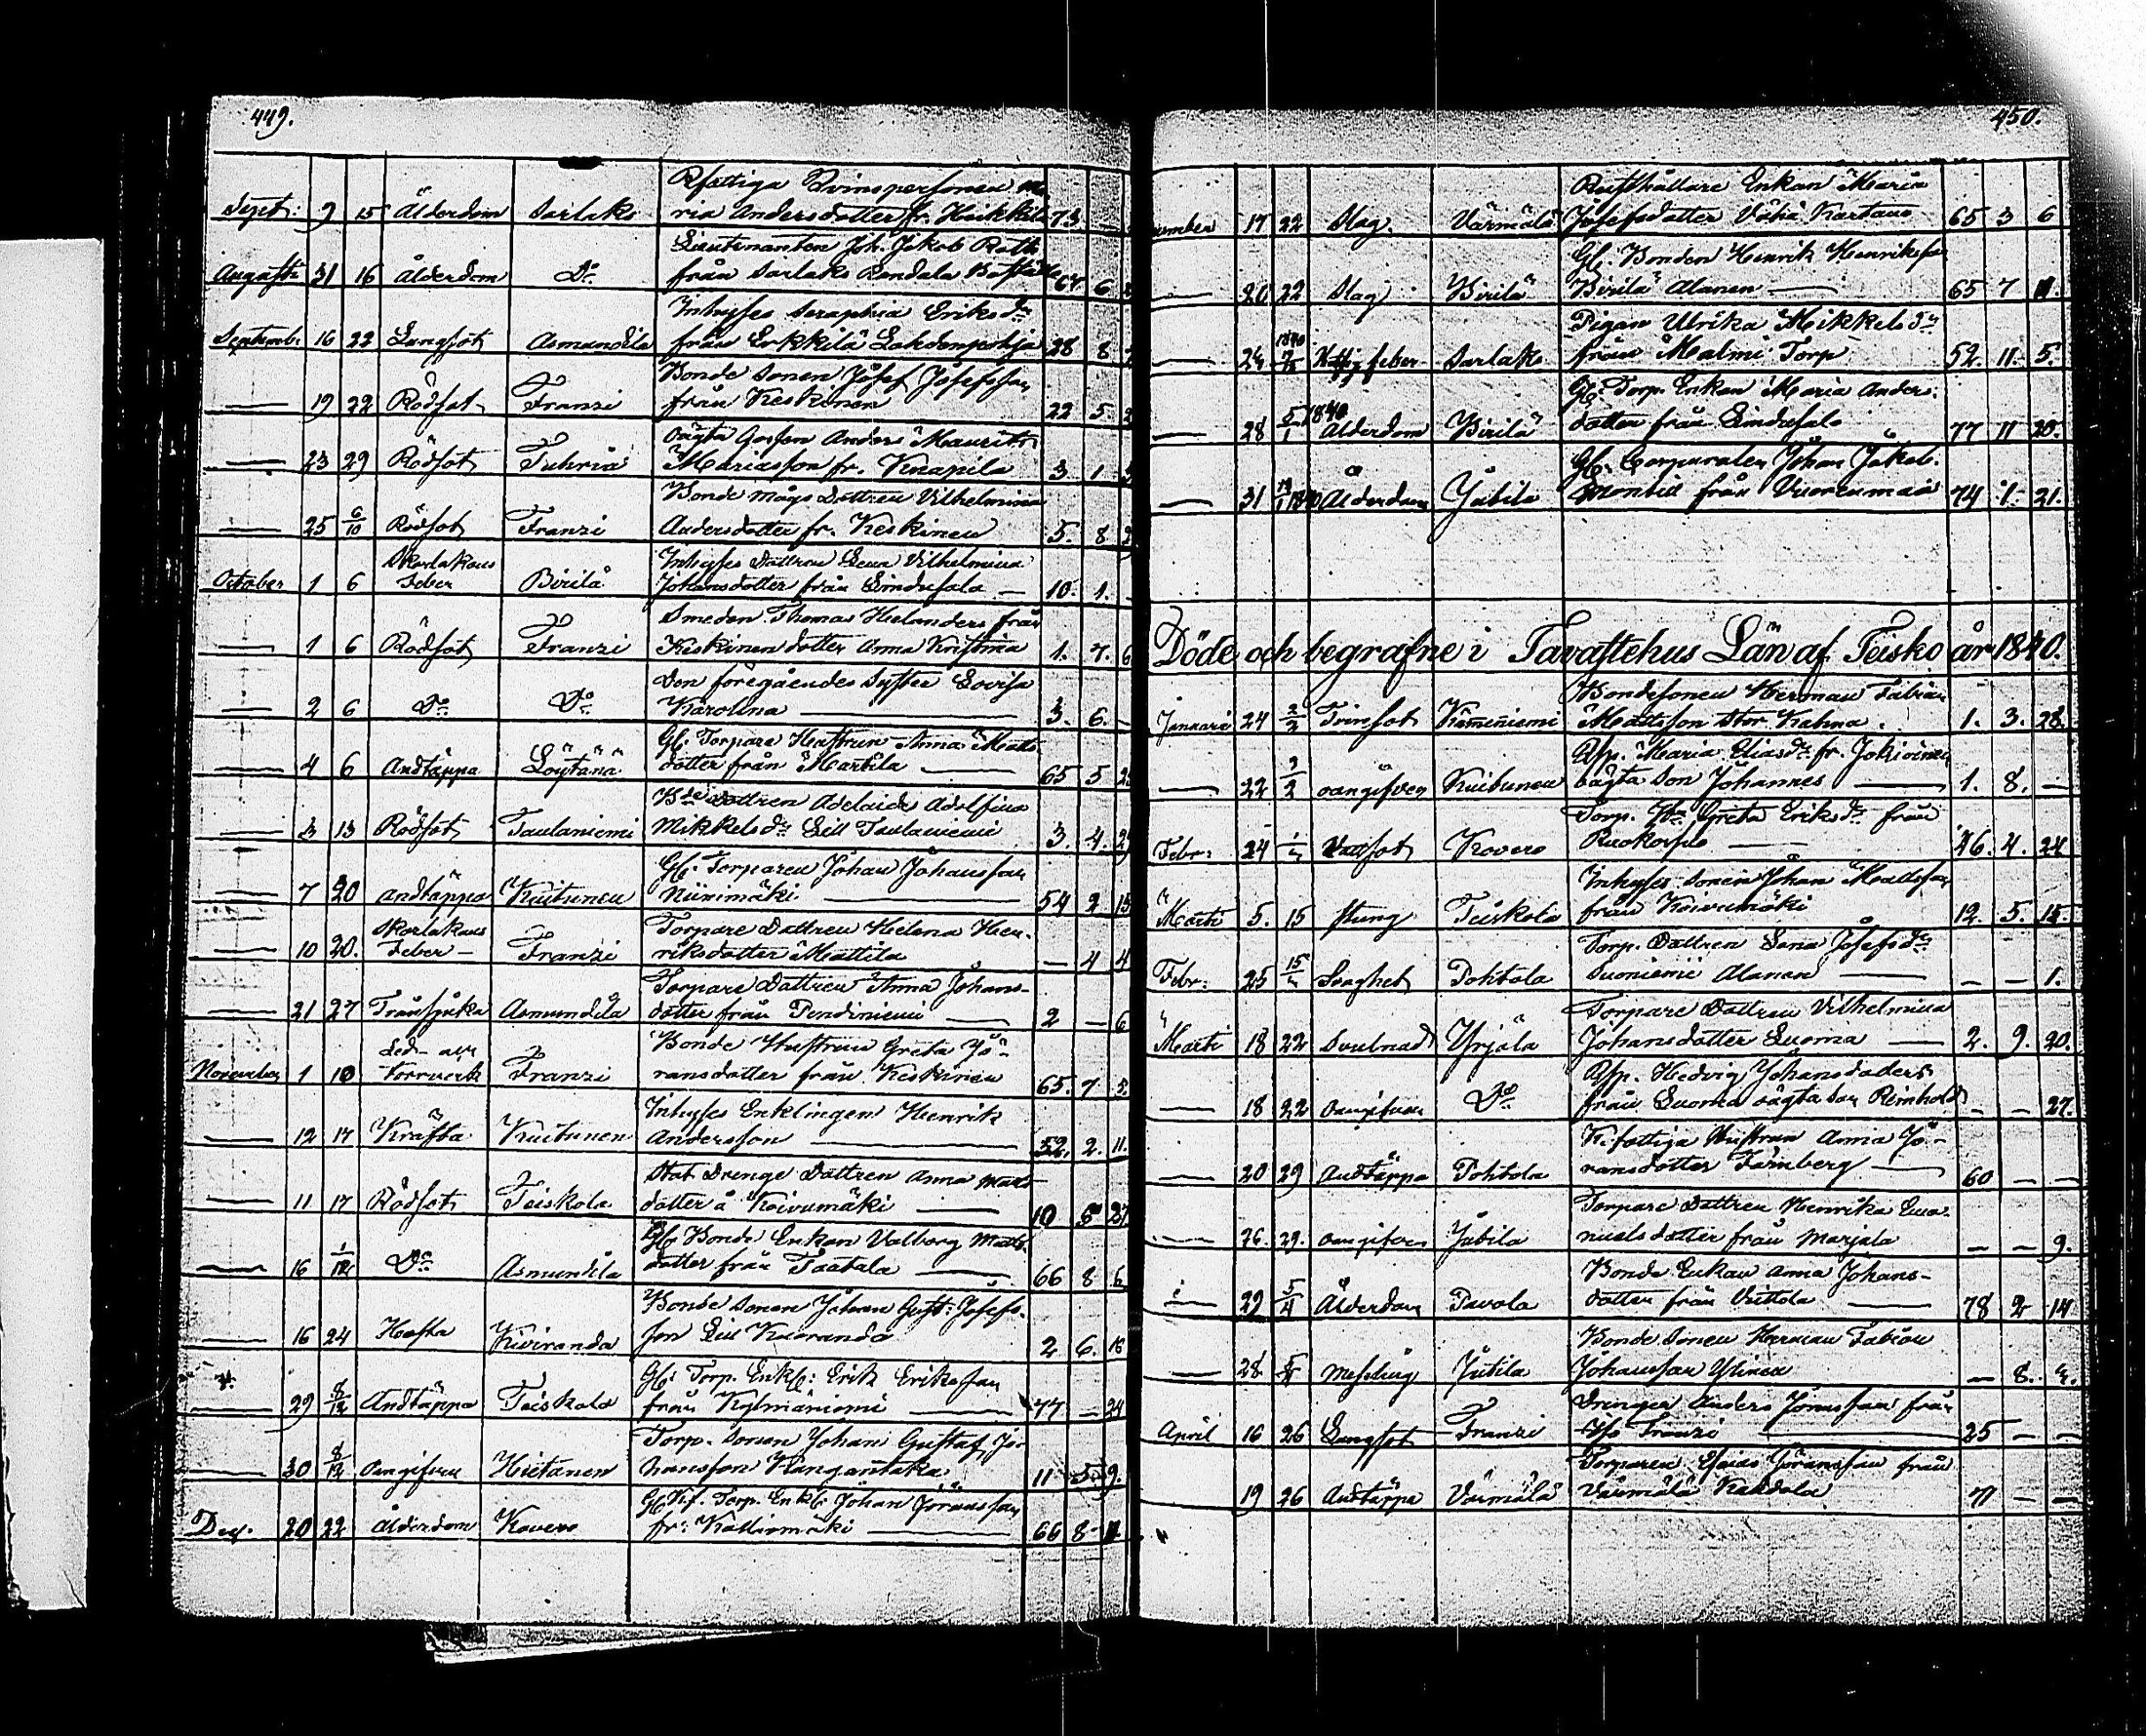 449.
Rfattiga Qvinspersonen Ma
Sept: 9 15 Ålderdom Sarlaks ria Andersdotter fr. Heikkilä 73
Lieutenanten Joh. Jakob Roth
Augusti 31 16 Ålderdom Do från Sarlaks 64 6
Inhyses Seraphia Eriksdr
Septemb: 16 22 Lungsot Asmundila från Erkkilä Lahdenpohja 28 8
Bonde Sonen Josef Josefsson
19 22 Rödsot Franzi från Keskinen 22 5
oägta Gossen Anders Mauritz
23 29 Rödsot Tuhria Mariasson fr. Knapila 3 1
Bonde mågs Dottren Vilhelmina
25 6/10 Rödsot Franzi Andersdotter fr. Keskinen 5. 8
Skarlakans Inhyses Dottren Lena Vilhelmina
October 1 6 feber Birilä Johansdotter från Lindusalo 10. 1.
Smeden Thomas Helanders från
1 6 Rödsot Franzi Keskinen dotter Anna Kristina 1. 7. 6
Den föregåendes Syster Lovisa
2 6 Do Do Karolina 3. 6.
Gl. Torpare Hustrun Anna Matts
4 6 Andtäppa Löytänä dotter från Martila 65 5
Bde dottren Adelaide Adolfina
3 13 Rödsot Taulaniemi Mikkelsdr Lill Taulaniemi 3. 4.
Gl. Torparen Johan Johansson
7 20 andtäppa Kuitunen Niinimäki 54 2 15
Skarlakans Torpare Dottren Helena Hen-
10 20. feber Franzi riksdotter Mattila 4 4
Torpare Dottren Anna Johans-
21 27 Trånsjuka Asmundila dotter från Pendiniemi 2 6
Led- och Bonde Hustrun Greta Jö-
November 1 10 Torrverk Franzi ransdotter från Keskinen 65. 7 5.
Inhyses Enklingen Henrik
12 17 Kräfta Kuitunen Andersson 52. 2. 11.
Stat Drenge Dottren Anna Matts
11 17 Rödsot Teiskola dotter å Koivumäki 10 5 27
Gl Bonde Enkan Valborg Matts
16 1/12 Do Asmundila dotter från Taatala 66 8 6
Bonde Sonen Johan Gust: Josefs-
16 24 Hosta Kiviranda son Lill Kuoranda 2. 6. 16
Gl: Torp. Enkl: Erik Eriksson
29 8/12 Andtäppa Teiskola från Kylmäniemi 77 24
Torp. Sonen Johan Gustaf Jo-
30 8/12 oangifven Hietanen hansson Kangantaka 11 5 9.
Gl Kf. Torp. Enkl: Johan Jöransson
Dec. 20 22 Ålderdom Kovero fr: Kalliomäki 66 8 11
450.
Rusthållare Enkan Maria
17 22 Slag. Värmälä Josefsdotter Vähä Kartano 65 3 6
Gl. Bonden Henrik Henriksson
20 22 Slag Birilä Birilä Alanen 65 7 11.
Pigan Ulrika Mikkelsdr
24. 1840 feber Sarlaks från Malmi Torp 52. 11. 5.
Gl. Torp. Enkan Maria Anders-
28 5/1 1840 Ålderdom Birilä dotter från Lindusalo 77 11 20.
Gl. Corporalen Johan Jakob
31 1840 Ålderdom Jutila från Vuorenmaa 74 1. 21.
Döde och begrafne i Tavastehus Län af Teisko år 1840.
Bondesonen Herman Fabian
Januari 24 2/2 Trinsot Kämmeniemi Mattsson Stor Kahna. 1. 3. 28.
Qsp. Maria Eliasdr fr. Jokioinen
22 2/2 oangifven Kuitunen oägta Son Johannes 1. 8.
Torp. Greta Eriksdr från
Febr: 24 Vattsot Kovero Ruokosuo 46. 4. 24
Inhyses Sonen Johan Mattsson
Marti 5. 15 Teiskola från Koivumäki 12. 5. 15.
Torp. Dottren Lena Josefsdr
Febr: 25 Svaghet Pohtola Suoniemi Alanen 1.
Torpare Dottren Vilhelmina
Marti 18 22 Svulnad Yrjälä Johansdotter Luoma 2. 9. 20.
Qsp. Hedvig Johansdoters
18 22 oangifven Do från Luoma oägta son Reinhold 27.
K. fattiga Hustrun Anna Jö-
20 29 Andtäppa Pohtola ransdotter Färnberg 60
Torpare Dottren Henrika Ema-
26. 29. oangifven Jutila nuelsdotter från Marjala 9.
Bonde Enkan Anna Johans-
29 5/4 Ålderdom Pavola dotter från Vattola 78 2 14
Bonde Sonen Herman Fabian
28. 5/4 Messling Jutila Johansson Ylinen 8. 4.
Drengen Anders Jonasson från
April 16 26 Lungsot Franzi Iso Franzi 25
Torparen Esaias Jöransson från
19 26 Andtäppa Värmälä Värmälä Kahdala 71